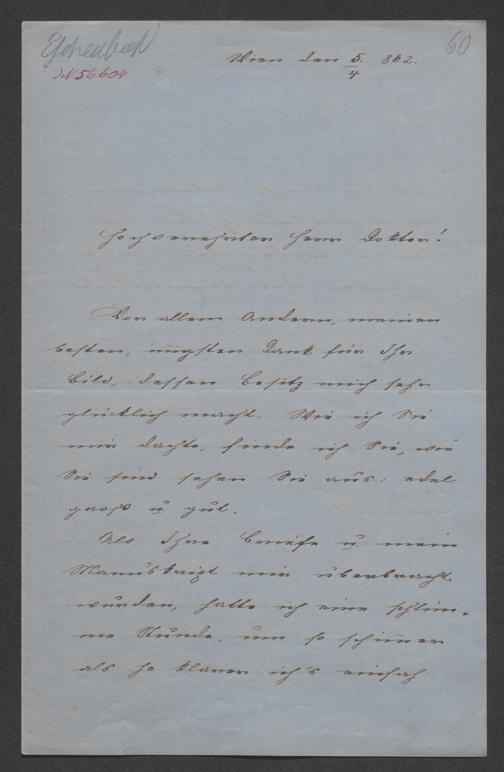 Eschenbach
60
IN 56604
Wien den 5/4 862.
Hochverehrter Herr Doktor!
Vor allem Andern, meinen
besten, innigsten Dank für Ihr
Bild, dessen Besitz mich sehr
glücklich macht. Wie ich Sie
mir dachte, finde ich Sie, wie
Sie sind sehen Sie aus: edel
groß u gut.
Als Ihre Briefe u mein
Manuskript mir überbracht
wurden, hatte ich eine schlim-
me Stunde, um so schlimmer
als je klarer ich's einsah